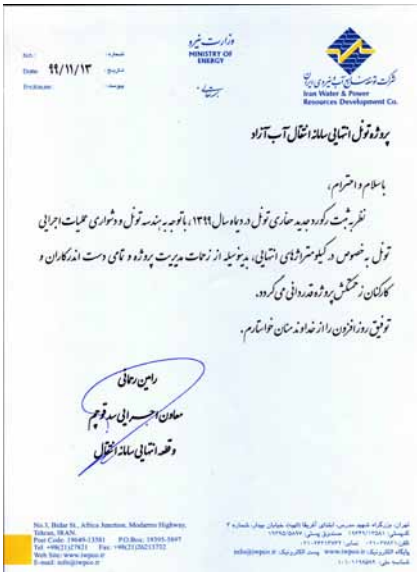 وزارت نیرو
MINISTRY OF
ENERGY
شرکت توسعه منابع آب و نیروی ایران
Iran Water & Power
Resources Development Co.
شماره:
Date: ۹۹/۱۱/۱۳ تاریخ:
پیوست:
پروژه تونل انتهایی سامانه انتقال آب آزاد
باسلام و احترام،
نظر به ثبت رکورد جدید حفاری تونل در دیماه سال ۱۳۹۹، با توجه به هندسه تونل و دشواری عملیات اجرایی
تونل به خصوص در کیلومتراژهای انتهایی، بدینوسیله از زحمات مدیریت پروژه و تمامی دست اندرکاران و
کارکنان زحمتکش پروژه قدردانی می گردد.
توفیق روز افزون را از خداوند منان خواستارم.
رامین رحمانی
معاون اجرایی سد قوچم
و قطعه انتهایی سامانه انتقال
No.3, Bidar St., Africa Junction, Modares Highway,
Tehran, IRAN.
Post Code: 19649-13581 P.O.Box: 19395-5897
Tel: +98(21)27821
Web Site: www.iwpco.ir
E-mail: info@iwpco.ir
تهران، بزرگراه شهید مدرس، ابتدای آفریقا، خیابان بیدار، شماره ۳
کدپستی: ۱۹۶۴۹۱۳۵۸۱ صندوق پستی: ۱۹۳۹۵/۵۸۹۷
پایگاه الکترونیک: www.iwpco.ir پست الکترونیک: info@iwpco.ir